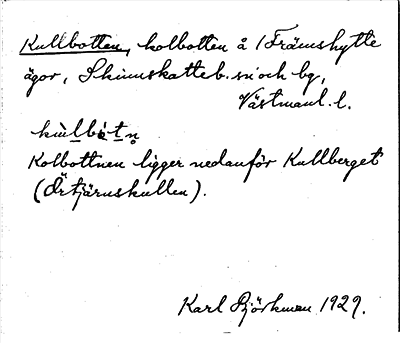 Kullbotten, kolbotten å Främshytte
ägor, Skinnskatteb. sn och bg,
Västmanl. l.
Kolbottnen ligger nedanför Kullberget
(Örtjärnskullen).
Karl Björkman 1929.